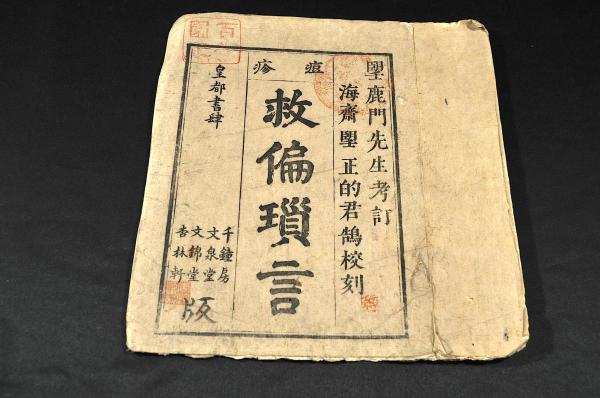 痘疹
朢鹿門先生考訂
海齋朢正的君鵠校刻
救偏瑣言
皇都書肆
千鐘房
文泉堂
文錦堂
杏林軒
版